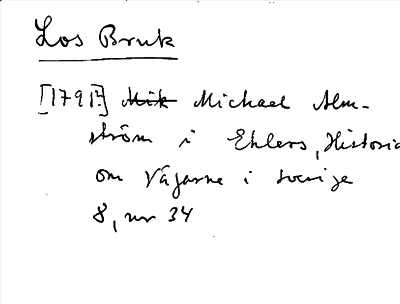 Los Bruk
[1791?] Mik Michael Alm-
ström i Ehlers, Historia
om vägarne i sverige
8, nr 34